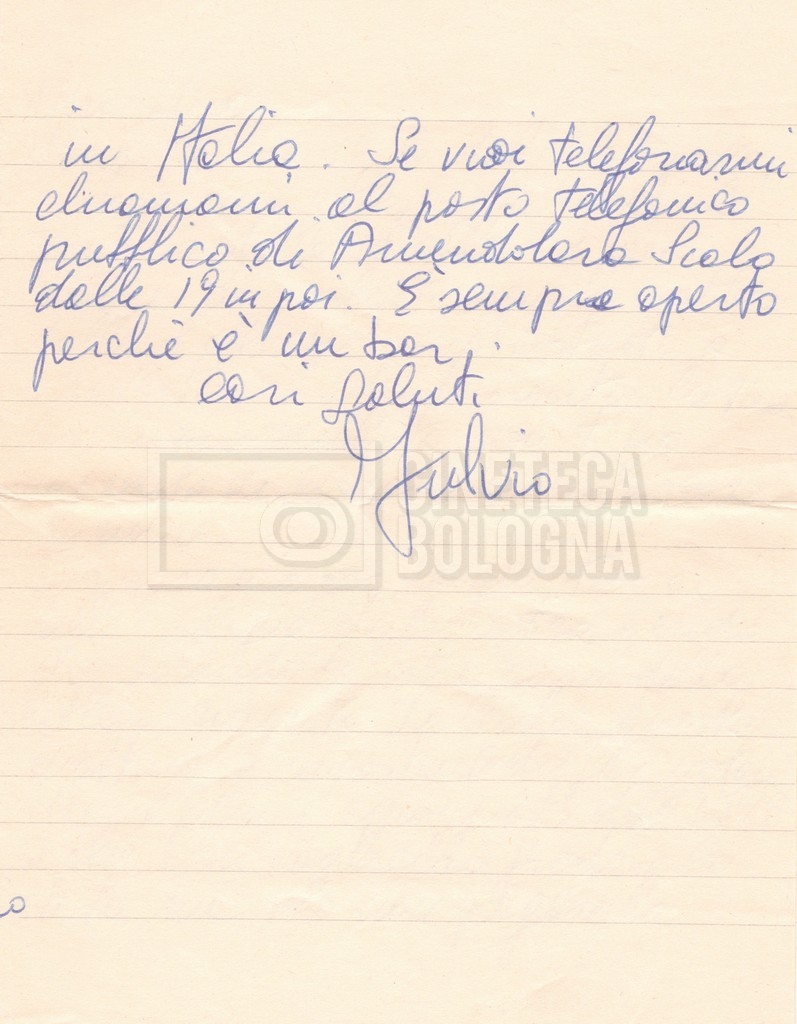 in Italia. Se vuoi telefonarmi
chiamami al posto telefonico
pubblico di Amendolara Scalo
dalle 19 in poi. È sempre aperto
perchè è un bar.
cari saluti
Fulvio
CINETECA
BOLOGNA